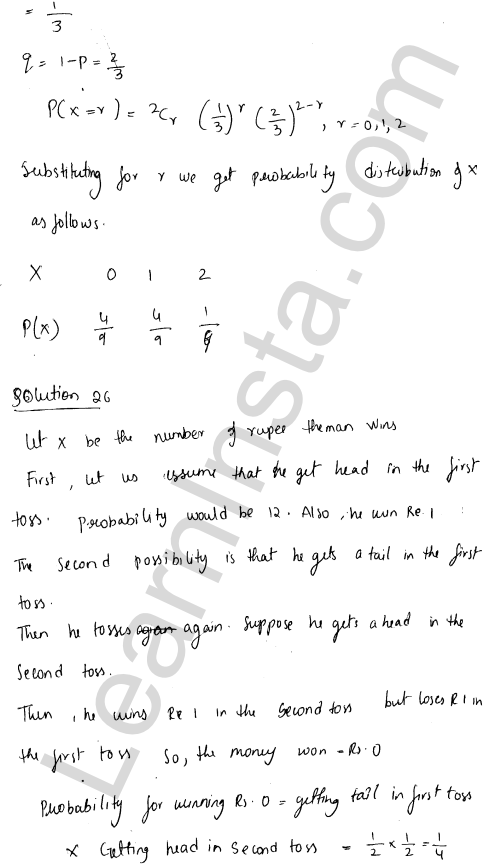 = 1/3
q = 1-P = 2/3
P(X=r) = ²Cr (1/3)^r (2/3)^2-r, r=0,1,2
Substituting for r we get probability distribution of X
as follows.
X 0 1 2
P(x) 4/9 4/9 1/9
Solution 26
Let X be the number of rupee the man wins
First, let us assume that he get head in the first
toss. Probability would be 12. Also, he win Re. 1
The second possibility is that he gets a tail in the first
toss.
Then he tosses again again. Suppose he gets a head in the
Second toss.
Then, he wins Re 1 in the second toss but loses R 1 in
the first toss So, the money won = Rs. 0
Probability for winning Rs. 0 = getting tail in first toss
x Getting head in second toss = 1/2 x 1/2 = 1/4
LearnInsta.com